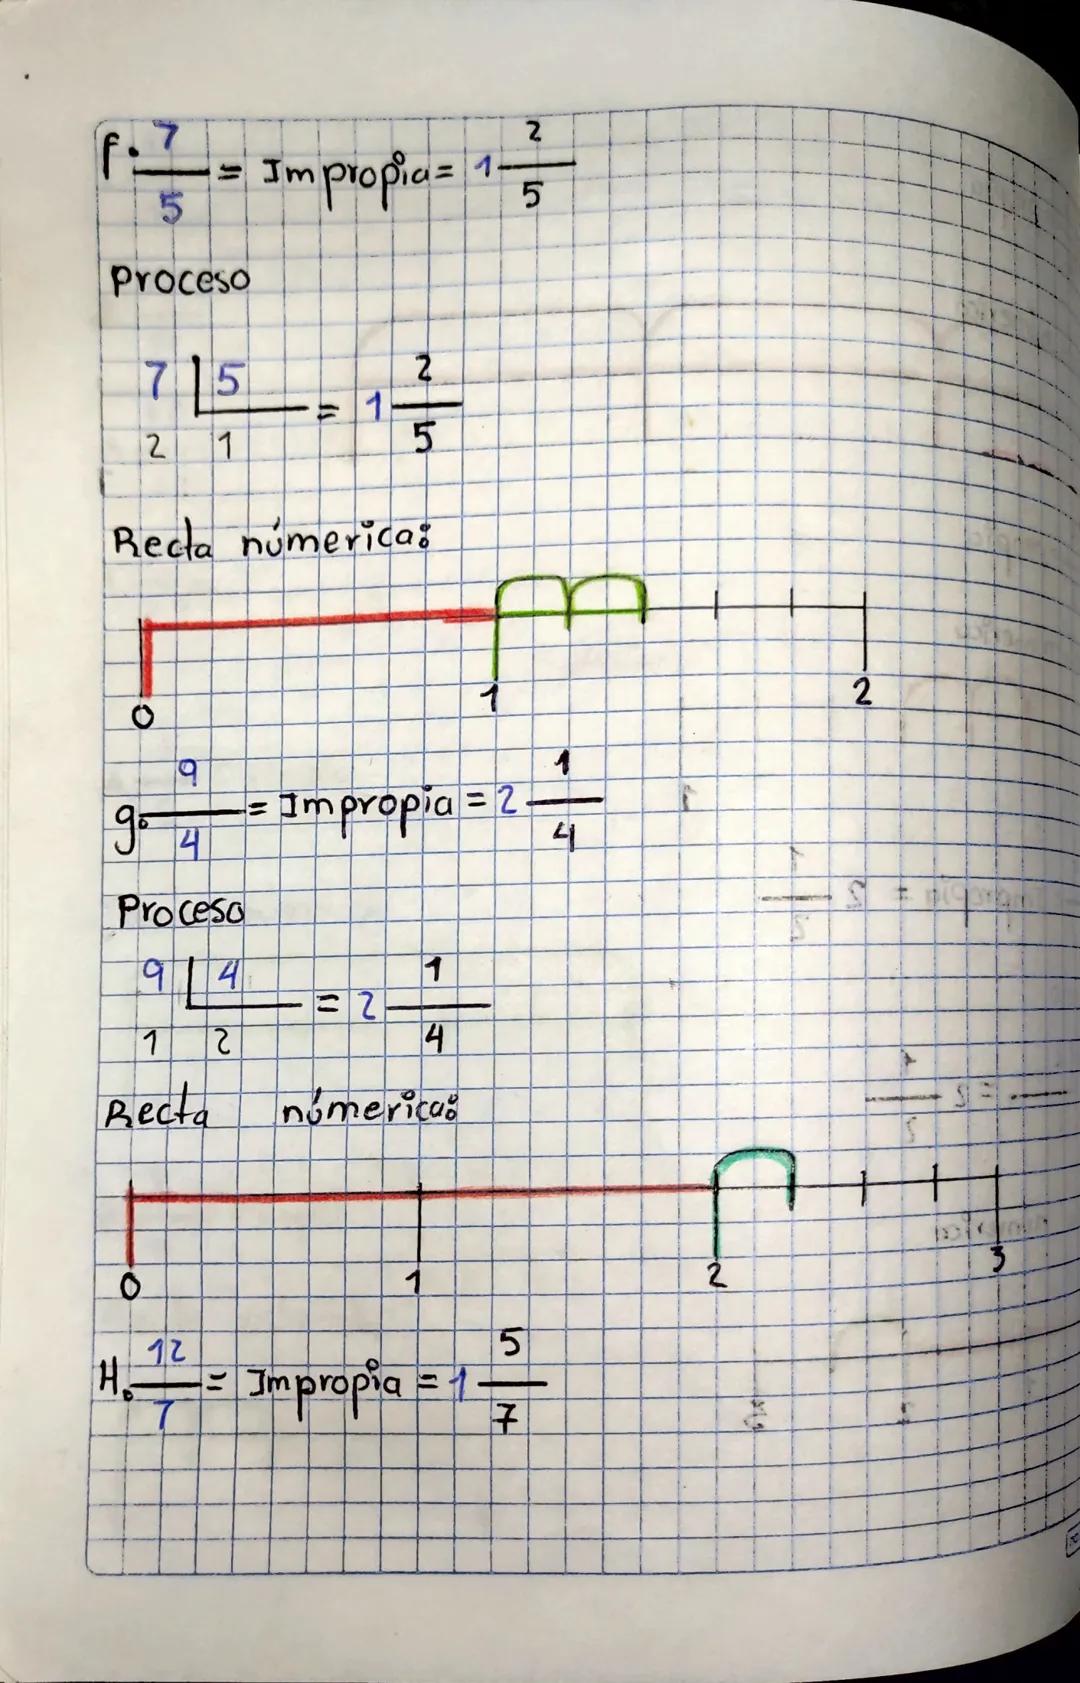 f. 7/5 = Impropia = 1 2/5
Proceso
7 | 5 = 1 2/5
2 1
Recta númerica:
0 1 2
g. 9/4 = Impropia = 2 1/4
Proceso
9 | 4 = 2 1/4
1 2
Recta númerica:
0 1 2 3
H. 12/7 = Impropia = 1 5/7